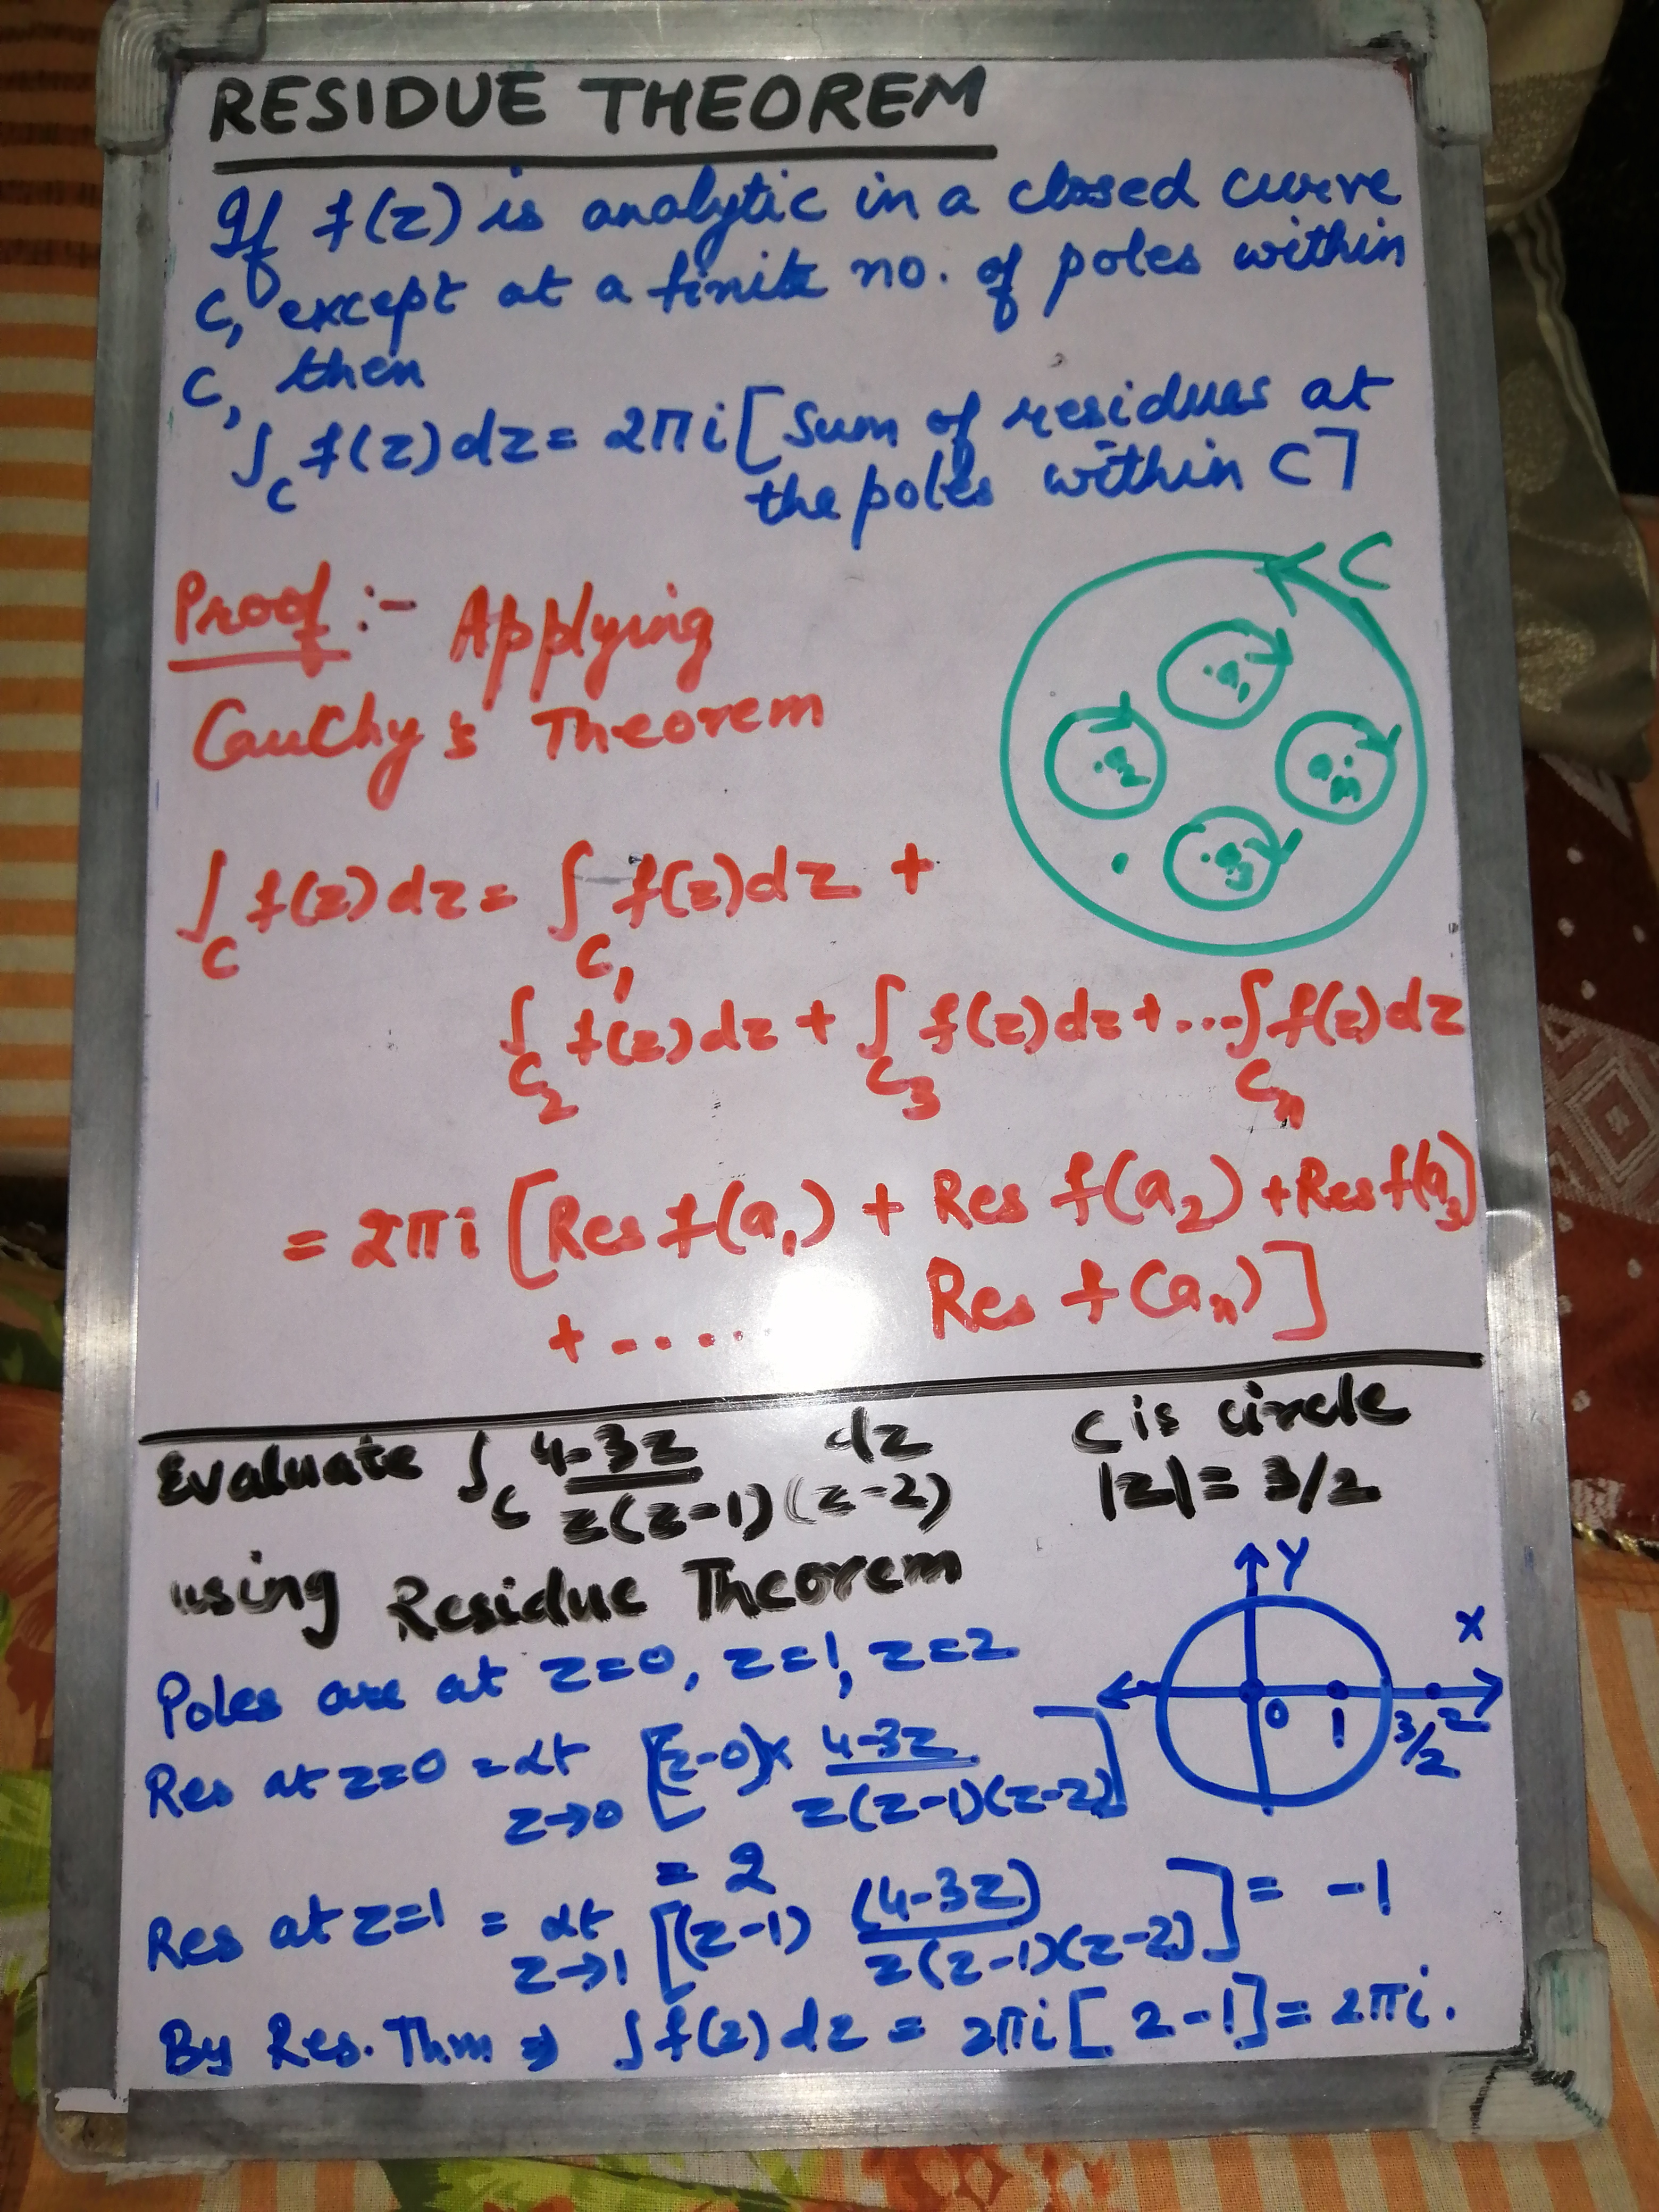 RESIDUE THEOREM
If f(z) is analytic in a closed curve
C, except at a finite no. of poles within
C, then
∫_C f(z)dz = 2πi [Sum of residues at
the poles within C]
C
.a₁
.a₂
a.n
.a₃
Proof :- Applying
Cauchy's Theorem
∫_C f(z)dz = ∫_C₁ f(z)dz +
∫_C₂ f(z)dz + ∫_C₃ f(z)dz + ... ∫_Cn f(z)dz
= 2πi [Res f(a₁) + Res f(a₂) + Res f(a₃)
+ ..... Res f(aₙ)]
Evaluate ∫_C (4-3z)/(z(z-1)(z-2)) dz C is circle
|z| = 3/2
using Residue Theorem
Y
X
0 1 3/2 2
Poles are at z=0, z=1, z=2
Res at z=0 = Lt z→0 [(z-0)× (4-3z)/(z(z-1)(z-2))]
= 2
Res at z=1 = Lt z→1 [(z-1) (4-3z)/(z(z-1)(z-2))] = -1
By Res. Thm ⇒ ∫f(z)dz = 2πi [2-1] = 2πi.